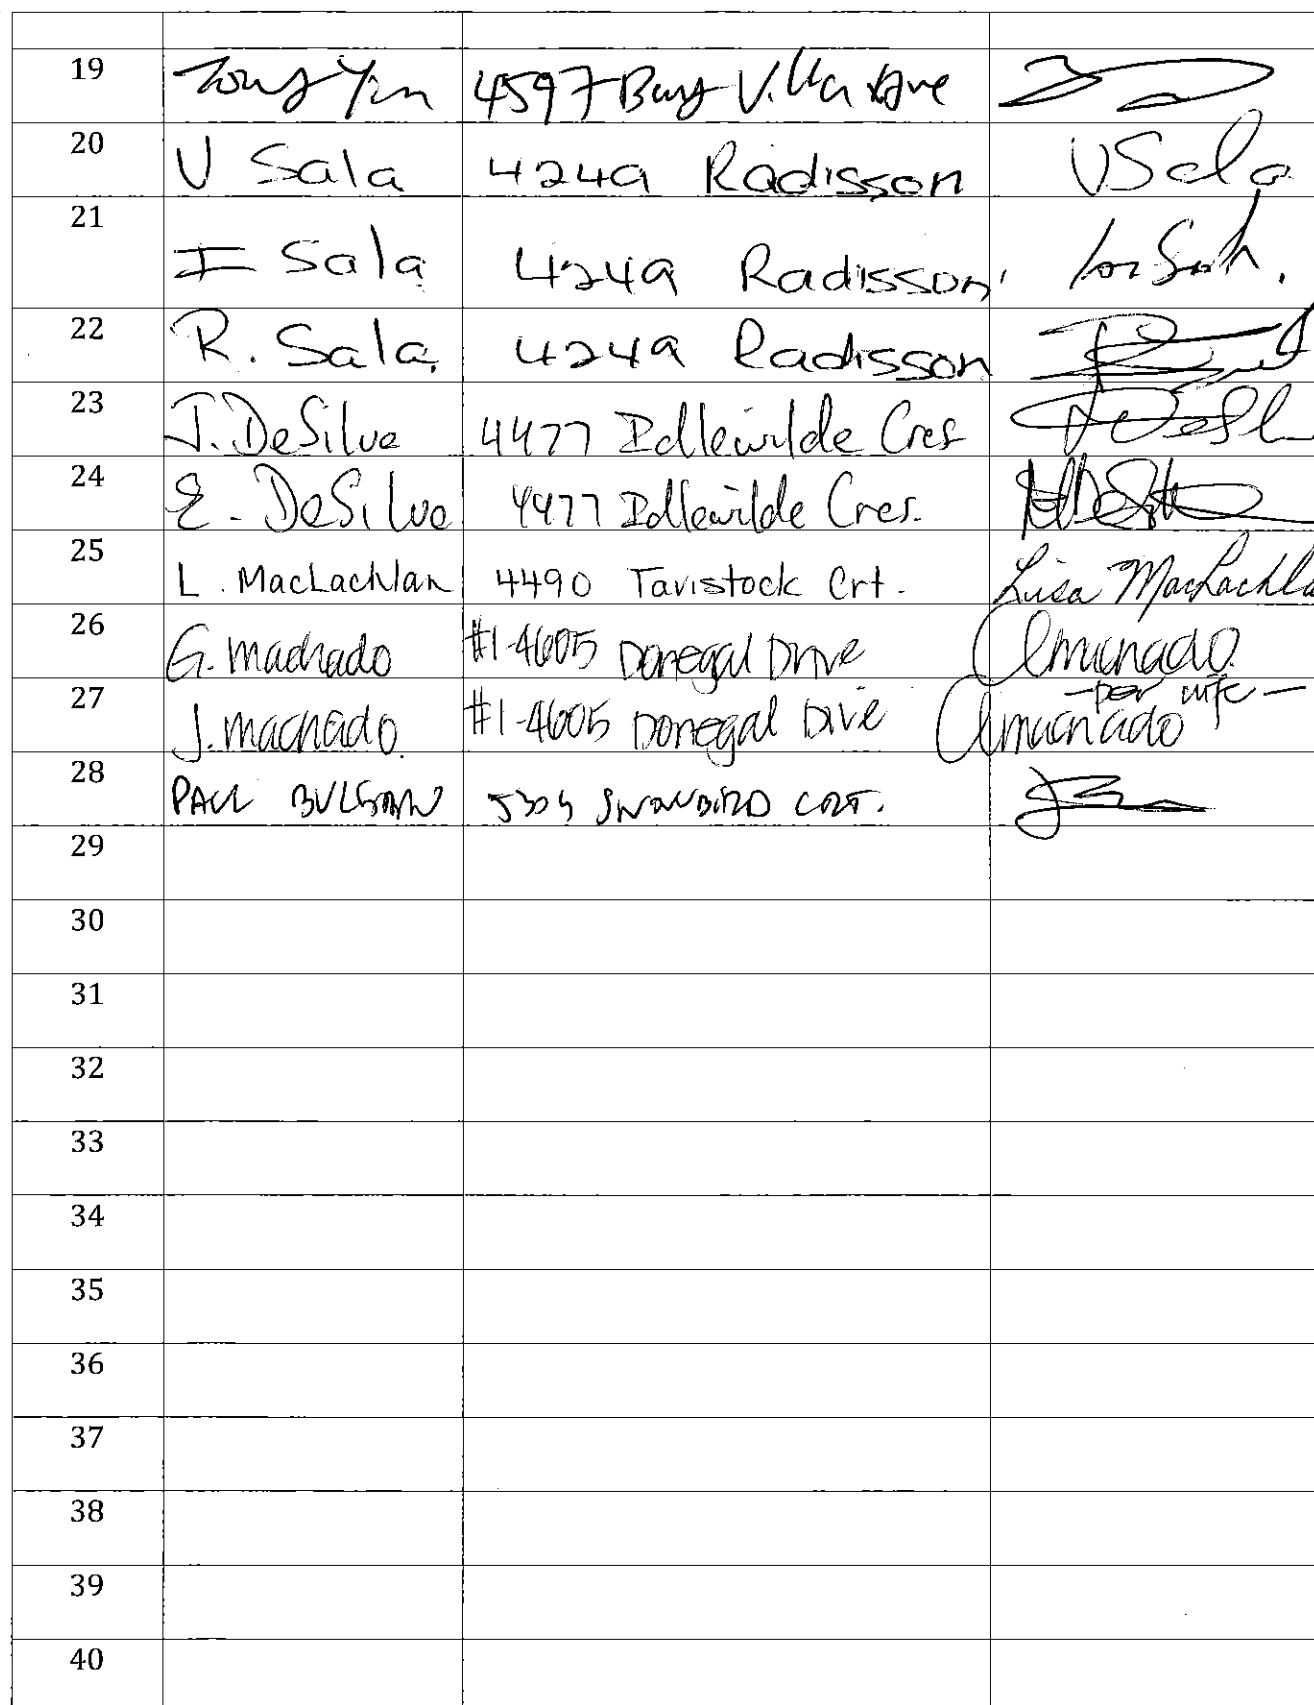 19 Tony Yin 4597 Bay Villa Ave
20 U Sala 4249 Radisson USala
21 I Sala 4249 Radisson
22 R. Sala 4249 Radisson
23 J. DeSilva 4477 Idlewilde Cres
24 E. DeSilva 4477 Idlewilde Cres.
25 L. MacLachlan 4490 Tavistock Crt. Lisa MacLachla
26 G. Machado #1-4605 Donegal Drive
- per wife -
27 J. Machado #1-4605 Donegal Dive
28 PAUL SNOWBIRD CRT.
29
30
31
32
33
34
35
36
37
38
39
40